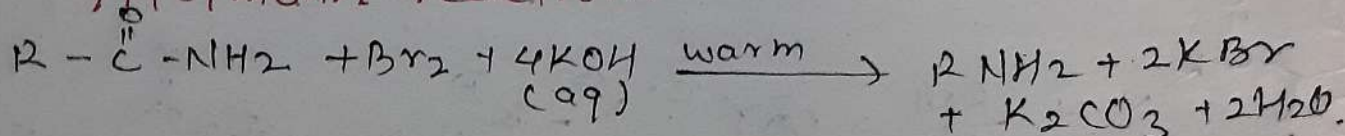 O
R - C - NH2 + Br2 + 4KOH warm → R NH2 + 2KBr
(aq) + K2CO3 + 2H2O.